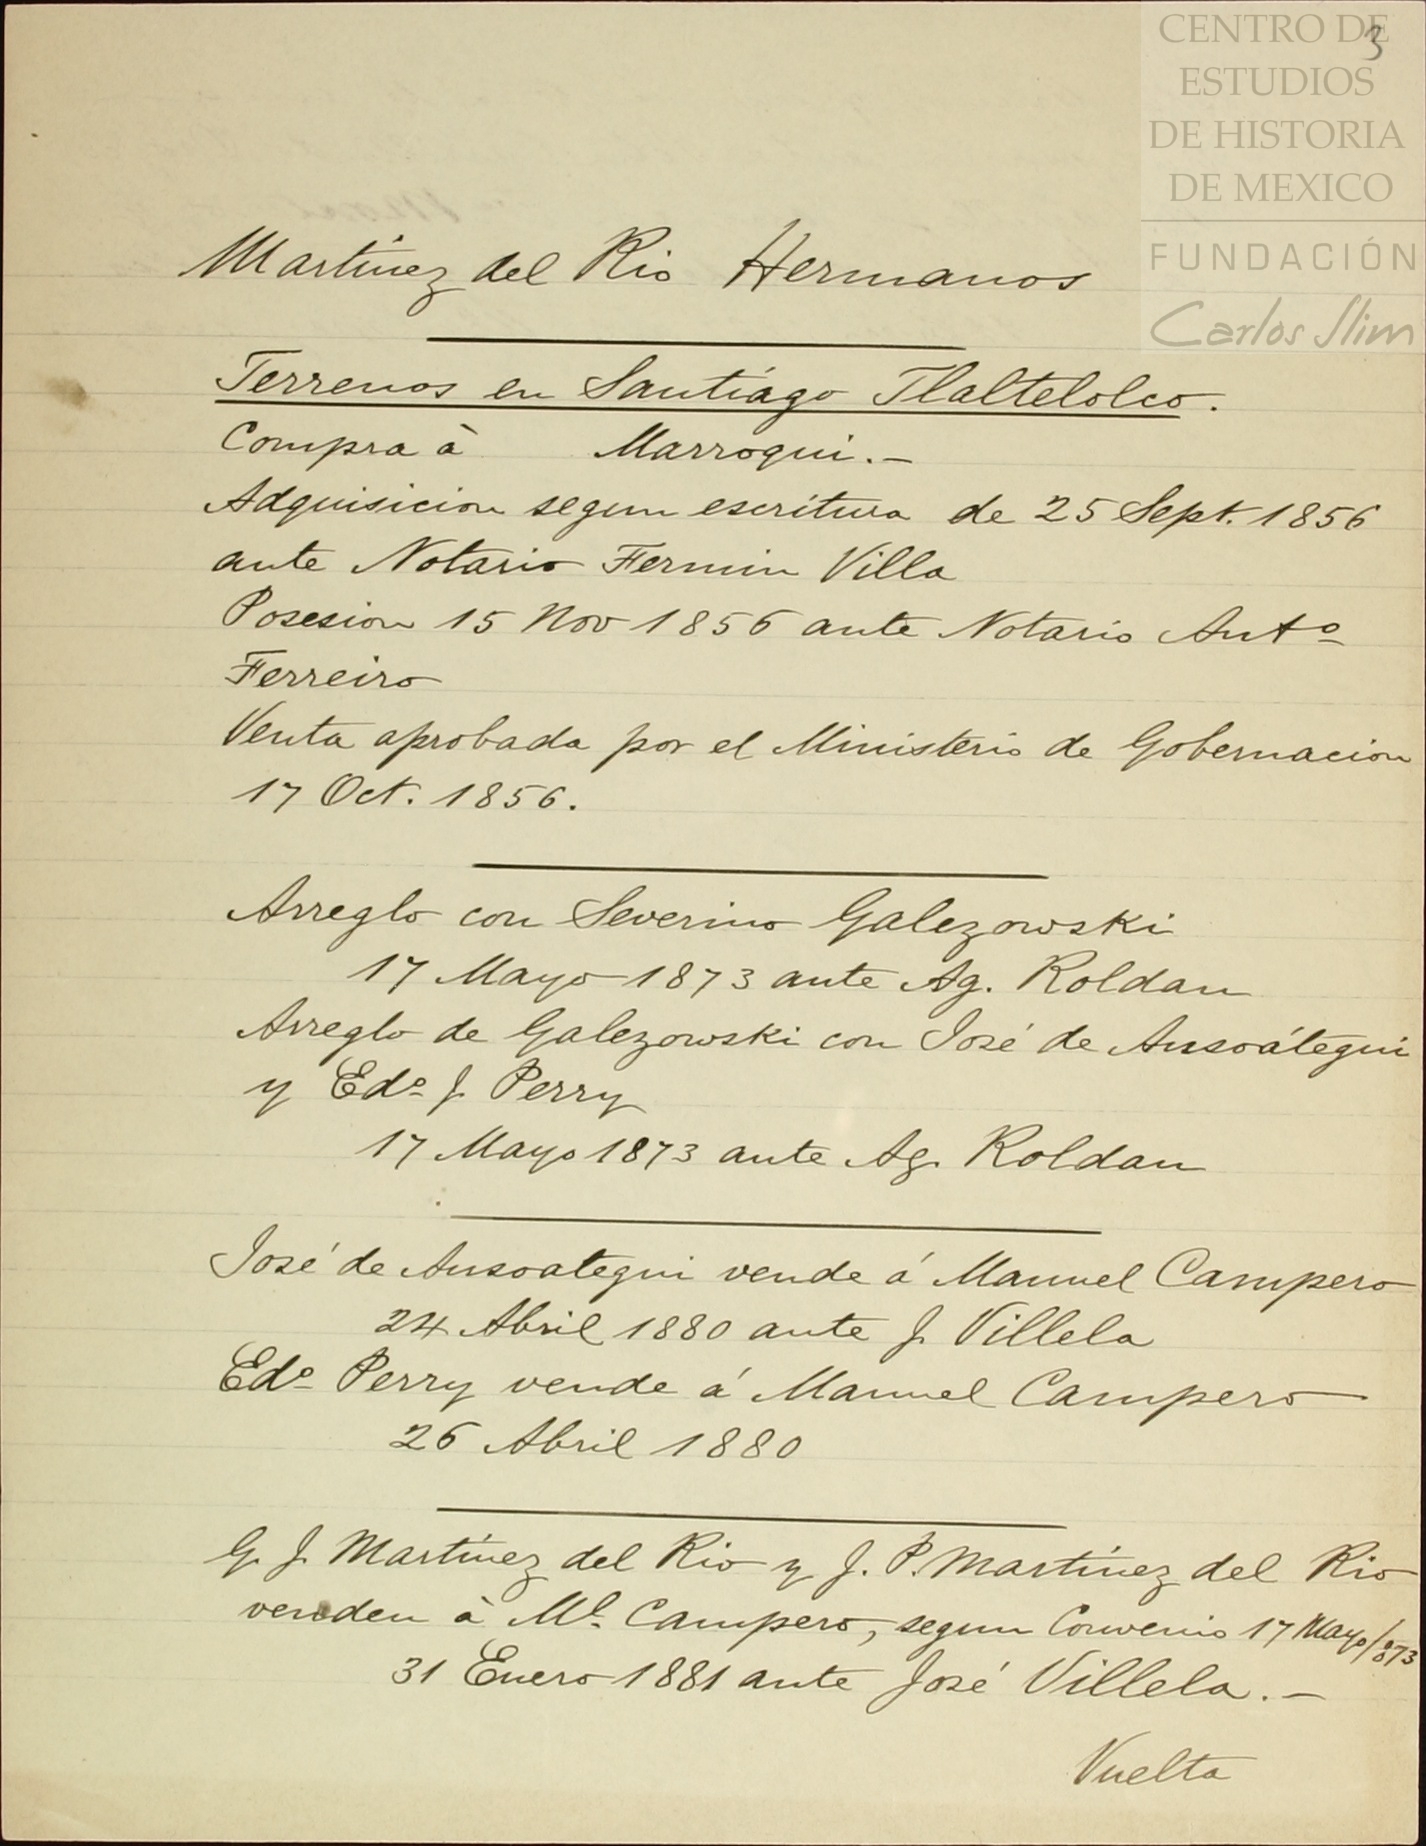 CENTRO DE
ESTUDIOS
DE HISTORIA
DE MEXICO
FUNDACIÓN
Carlos Slim
3
Martinez del Rio Hermanos
Terrenos en Santiago Tlaltelolco.
Compra à Marroqui.—
Adquisicion segun escritura de 25 Sept. 1856
ante Notario Fermin Villa
Posesion 15 Nov 1856 ante Notario Anto
Ferreiro
Venta aprobada por el Ministerio de Gobernacion
17 Oct. 1856.
Arreglo con Severino Galezowski
17 Mayo 1873 ante Ag. Roldan
Arreglo de Galezowski con José de Ansoátegui
y Edo J. Perry
17 Mayo 1873 ante Ag. Roldan
José de Ansoategui vende á Manuel Campero
24 Abril 1880 ante J. Villela
Edo Perry vende á Manuel Campero
26 Abril 1880
G. J. Martinez del Rio y J. P. Martinez del Rio
venden à Ml. Campero, segun Convenio 17 Mayo/873
31 Enero 1881 ante José Villela.—
Vuelta